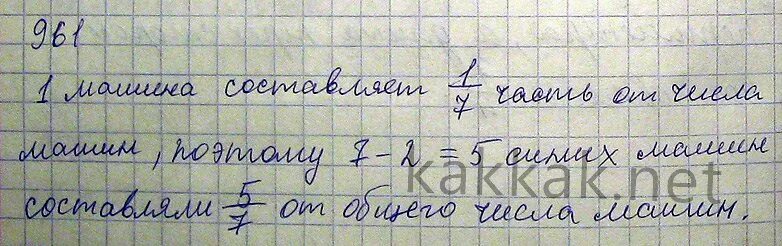 961
1 машина составляет 1/7 часть от числа
машин, поэтому 7-2=5 синих машин
составляли 5/7 от общего числа машин.
kakkak.net